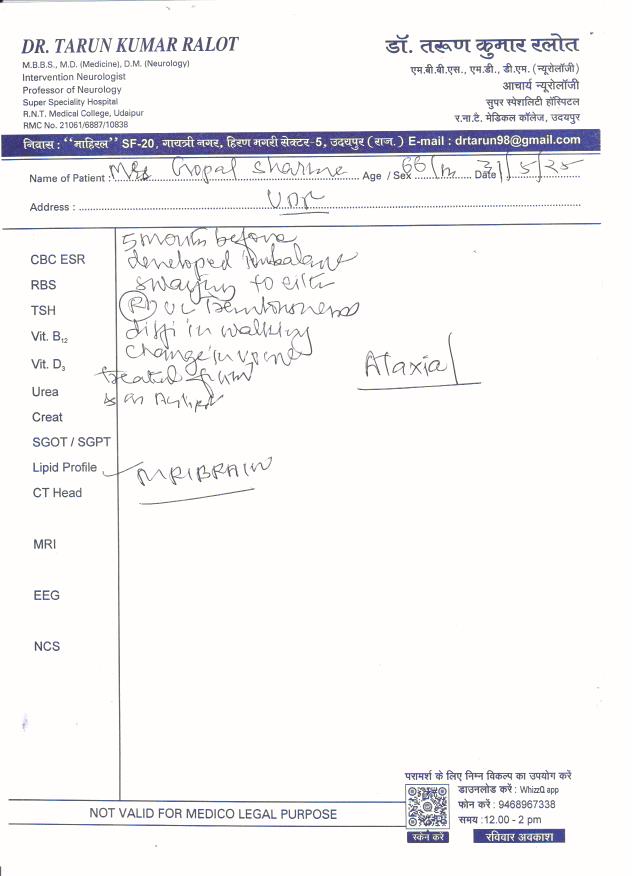 DR. TARUN KUMAR RALOT
M.B.B.S., M.D. (Medicine), D.M. (Neurology)
Intervention Neurologist
Professor of Neurology
Super Speciality Hospital
R.N.T. Medical College, Udaipur
RMC No. 21061/6887/10838
डॉ. तरूण कुमार रलोत
एम.बी.बी.एस., एम.डी., डी.एम. (न्यूरोलॉजी)
आचार्य न्यूरोलॉजी
सुपर स्पेशलिटी हॉस्पिटल
र.ना.टै. मेडिकल कॉलेज, उदयपुर
निवास : "माहिरल" SF-20, गायत्री नगर, हिरण मगरी सेक्टर-5, उदयपुर (राज.) E-mail : drtarun98@gmail.com
Name of Patient : Gopal Sharma Age / Sex 66/m Date 31/5/25
Address : UDR
5 months before
CBC ESR developed Imbalance
RBS swaying to
TSH
Vit. B12 diff in walking
change in
Vit. D3 Ataxia
treated from
Urea
Creat
SGOT / SGPT
Lipid Profile MRI BRAIN
CT Head
MRI
EEG
NCS
परामर्श के लिए निम्न विकल्प का उपयोग करें
डाउनलोड करें : WhizzQ app
फोन करें : 9468967338
समय :12.00 - 2 pm
स्कैन करें रविवार अवकाश
NOT VALID FOR MEDICO LEGAL PURPOSE